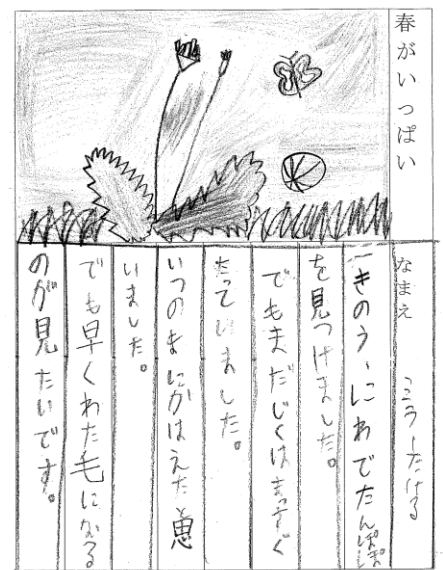 春がいっぱい
なまえ
きのう、にわでたんぽぽ
を見つけました。
でもまだじくはまっすぐ
たっていました。
いつのまにかはえたと思
いました。
でも早くわた毛になる
のが見たいです。